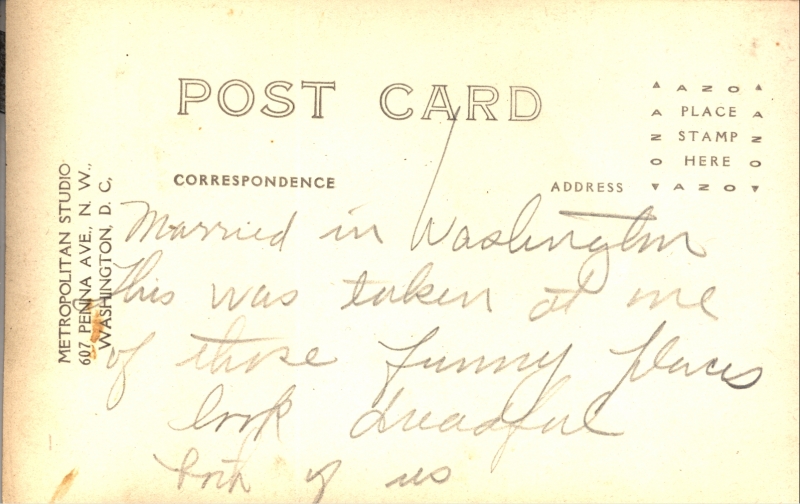 POST CARD
▲ AZO ▲
A PLACE A
Z STAMP Z
O HERE O
▼ AZO ▼
CORRESPONDENCE
ADDRESS
METROPOLITAN STUDIO
607 PENNA AVE., N. W.,
WASHINGTON, D. C,
Married in Washington
This was taken at one
of those funny places
look dreadful
both of us